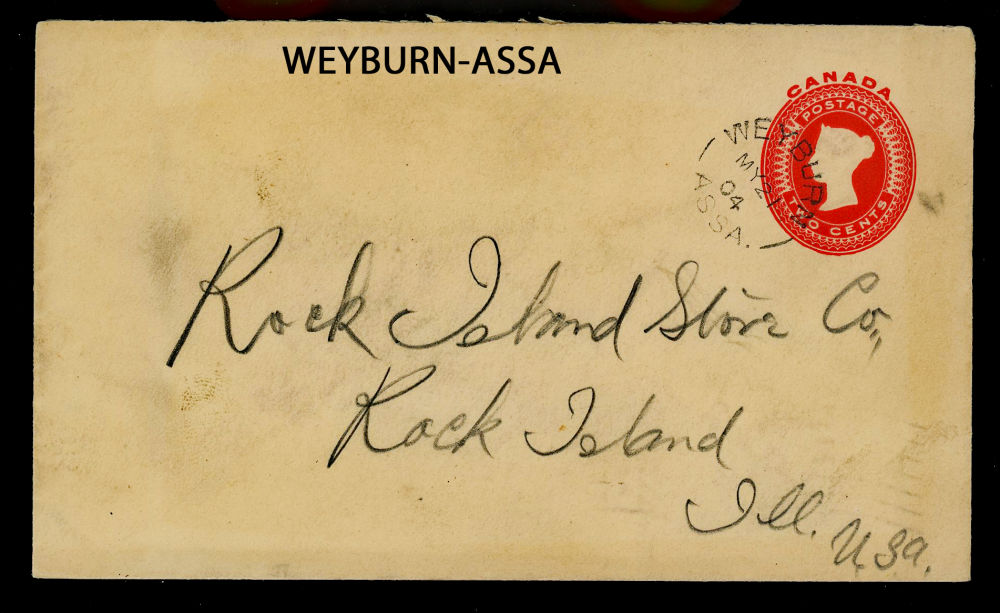 WEYBURN-ASSA
CANADA
POSTAGE
TWO CENTS
WEYBURN
MY 21
04
ASSA.
Rock Island Store Co.,
Rock Island
Ill.
U.S.A.